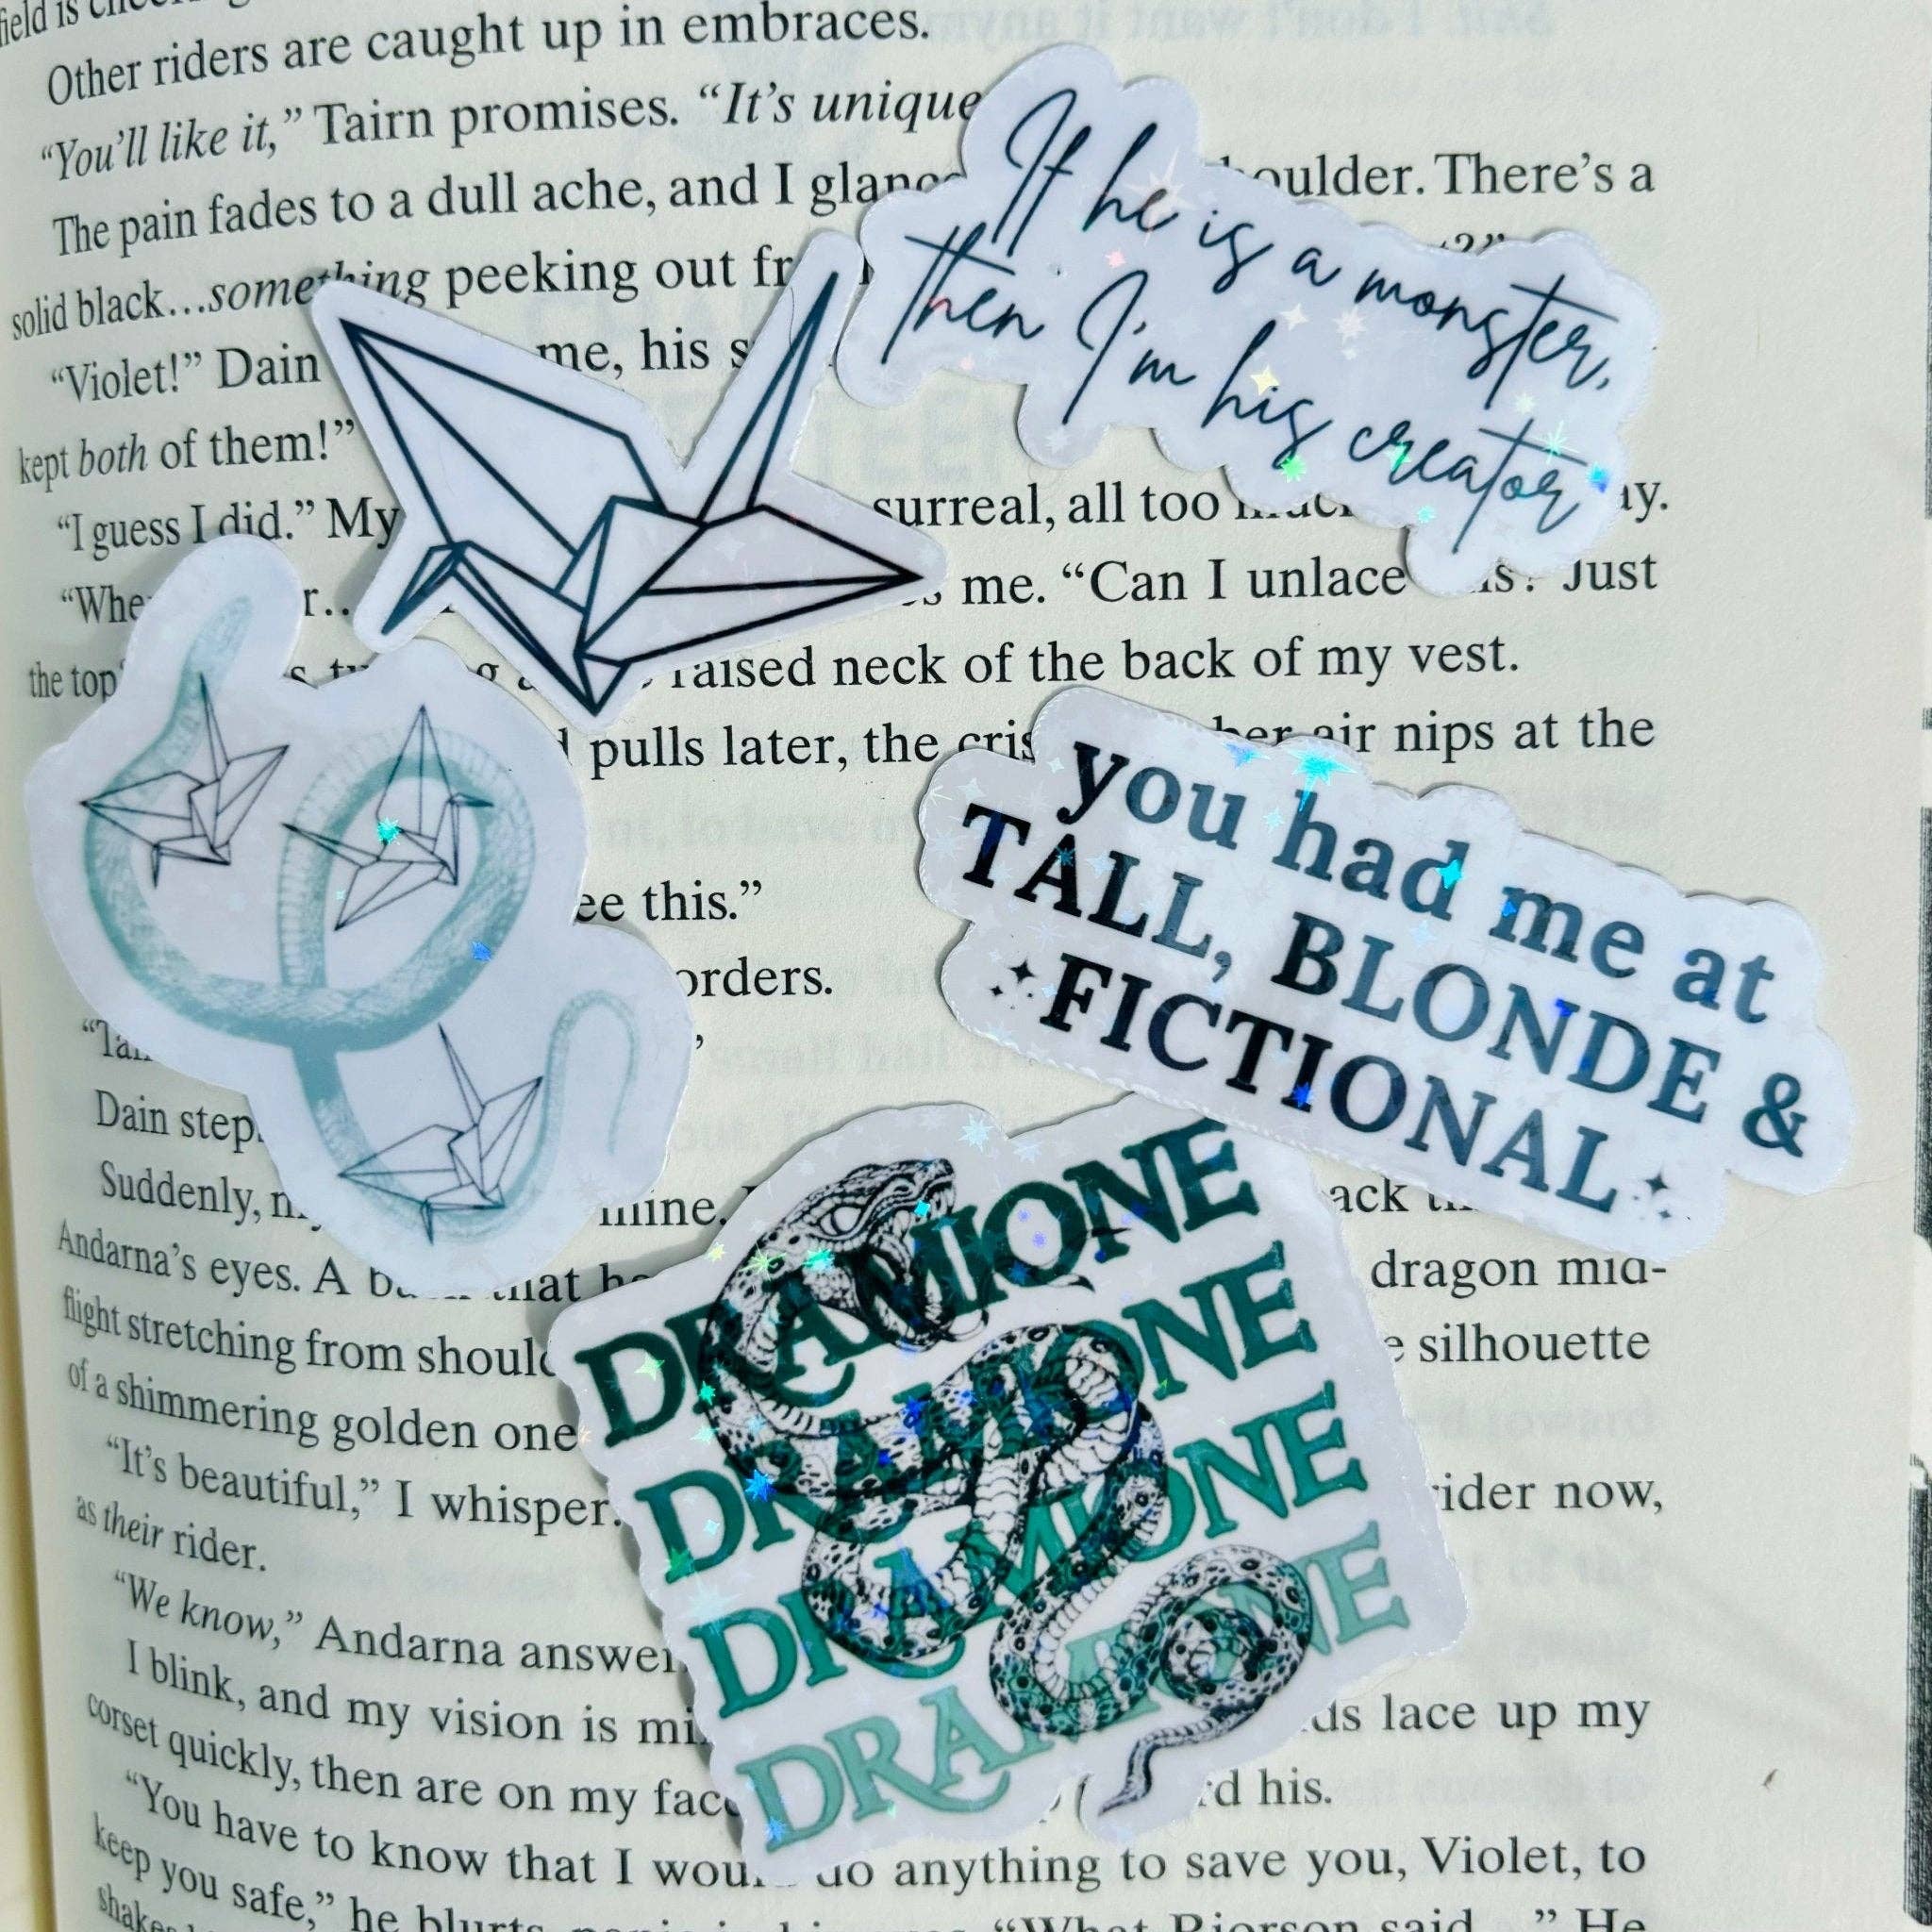 field is
Other riders are caught up in embraces.
“You’ll like it,” Tairn promises. “It’s unique
The pain fades to a dull ache, and I glance There’s a
solid black…something peeking out
“Violet!” Dain me, his
kept both of them!”
“I guess I did.” My surreal, all too
me. “Can I unlace Just
the top raised neck of the back of my vest.
pulls later, the air nips at the
this.”
orders.
Dain
Suddenly, mine.
Andarna’s eyes. A that dragon mid-
flight stretching from silhouette
of a shimmering golden one
“It’s beautiful,” I whisper. rider now,
as their rider.
“We know,” Andarna
I blink, and my vision is lace up my
corset quickly, then are on my his.
“You have to know that I would do anything to save you, Violet, to
keep you safe,” he blurts, “What Riorson said…” He
If he is a monster,
then I'm his creator
you had me at
TALL, BLONDE &
FICTIONAL
DRAMIONE
DRAMIONE
DRAMIONE
DRAMIONE